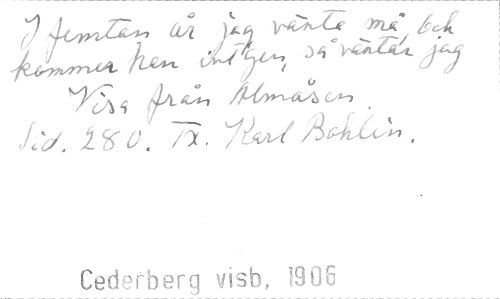 I femtan år jag vänta må, och
kommer han int' gen, så väntar jag
Visa från Älmåsen.
Sid. 280. Tx. Karl Bohlin.
Cederberg visb, 1906